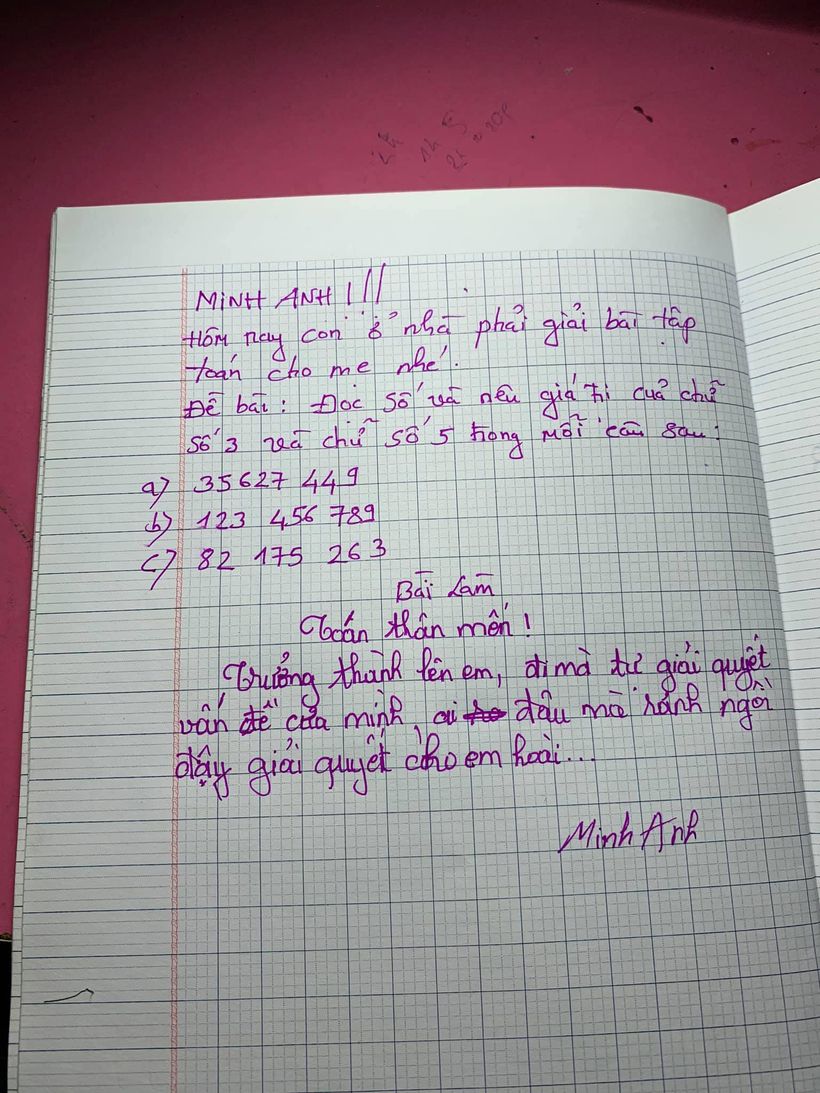 MINH ANH !!!
Hôm nay con ở nhà phải giải bài tập
toán cho mẹ nhé.
Đề bài: Đọc số và nêu giá trị của chữ
số 3 và chữ số 5 trong mỗi câu sau:
a) 35627 449
b) 123 456 789
c) 82 175 263
Bài Làm
Toán thân mến!
Trưởng thành lên em, đi mà tự giải quyết
vấn đề của mình, ai đâu mà rảnh ngồi
đây giải quyết cho em hoài...
Minh Anh